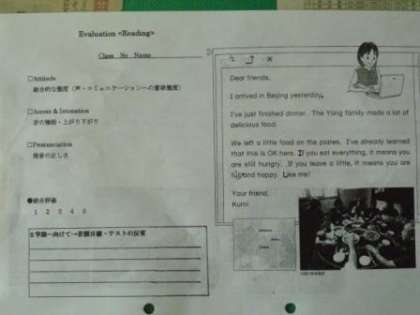 Evaluation <Reading>
Class No Name
□Attitude
総合的な態度（声・コミュニケーションへの意欲態度）
□Accent & Intonation
音の強弱・上がり下がり
□Pronunciation
発音の正しさ
●総合評価
1 2 3 4 5
Dear friends,
I arrived in Beijing yesterday.
I've just finished dinner. The Yang family made a lot of
delicious food.
We left a little food on the plates. I've already learned
that this is OK here. If you eat everything, it means you
are still hungry. If you leave a little, it means you are
full and happy. Like me!
Your friend,
Kumi